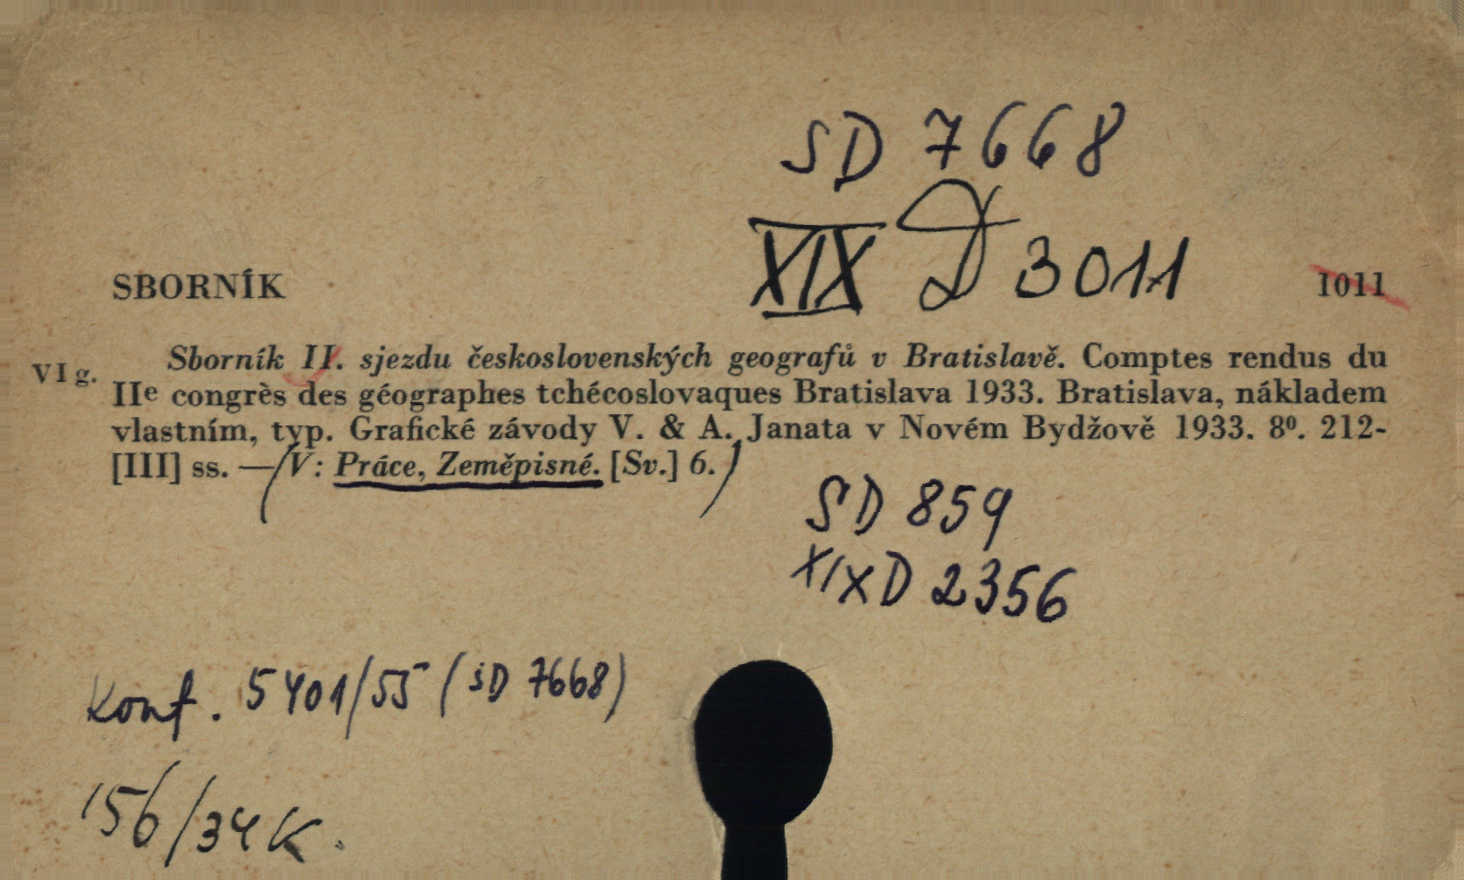 SD 7668
XIX D 3011
SBORNÍK 1011
VI g. Sborník II. sjezdu československých geografů v Bratislavě. Comptes rendus du
IIe congrès des géographes tchécoslovaques Bratislava 1933. Bratislava, nákladem
vlastním, typ. Grafické závody V. & A. Janata v Novém Bydžově 1933. 8⁰. 212-
[III] ss. — (V: Práce, Zeměpisné. [Sv.] 6.)
SD 859
XIX D 2356
Konf. 5401/55 (SD 7668)
156/34 K.